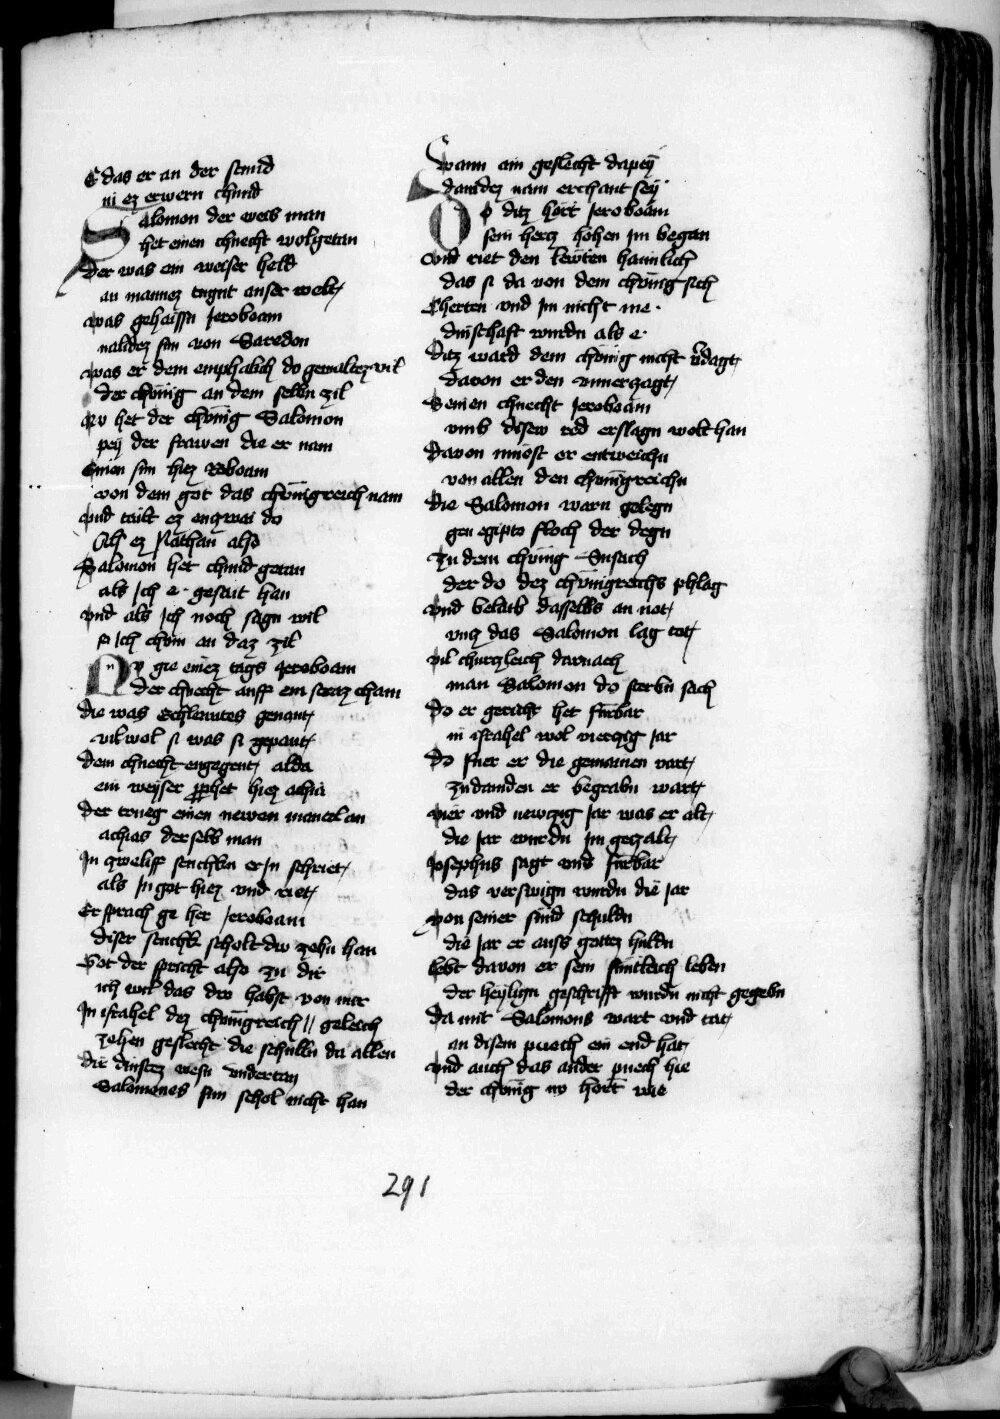 E das er an der stund
ni ez erwern chund
Salomon der weis man
het einen chnecht wolgetan
Der was ein weiser held
an mannez tugnt auser welt
Was gehaissn Jeroboam
nabdez sun von Saredon
Was er dem emphalich do gewaltez vil
der chönig an dem selbn zil
Nv het der chönig Salomon
pey der frawen die er nam
Einen sun hiez Roboam
von dem got das chönigreich nam
Vnd tailt ez enzwai do
Als ez Nathan also
Salomon het chund getan
als Ich e gesait han
Vnd als Ich noch sagn wil
so ich chvm an daz zil
Nv gie einez tags Jeroboam
der chnecht auff ein straz cham
Die was genant
vil wol si was si gepant
Dem chnecht engegent alda
ein weyser prophet hiez achia
Der trueg einen newen mantel an
achias der selb man
In zweliff stuchkn er In schriet
als In got hiez vnd riet
Er sprach ge her Jeroboam
diser stuchk scholt dw zehn han
Got der spricht also zu dir
ich wil das dw habst von mir
In israhel dez chönigreich geleich
zehen geslecht die schulln da allen
Dir dinstez wesn vndertan
Salomones sun schol nicht han
Wann ain geslecht dapey
dauidez nam erchant sey
Do ditz hört Jeroboam
sein hercz hohen im began
Vnd riet den lewten haimlich
das si da von dem chönig sich
Cherten vnd Im nicht me
dinschaft wurdn als e
Ditz ward dem chönig nicht v̄dagt
dauon er den vnuerzagt
Seinen chnecht Jeroboam
vmb disew red erslagn wolt han
Dauon muost er entweichn
von allen den chönigreichn
Die Salomon warn gelegn
gen egipto floch der degn
Zu dem chönig Susach
der do dez chönigreichs phlag
Vnd belaib dasselbs an not
vncz das Salomon lag tot
Vil churczleich darnach
man Salomon do sterbn sach
Do er gericht het fürbar
in israhel wol vierczig Jar
Do fuer er die gemainen vart
zu dauiden er begrabn wart
Vier vnd newczig Jar was er alt
die Jar wurdn Im geczalt
Josephus sagt vnd fürbar
das verswign wurdn die Jar
Von seiner sünd schuldn
die Jar er auss gottez huldn
Lebt dauon er sein suntleich leben
der heylign geschrifft wurdn nicht gegebn
Da mit Salomons wart vnd tat
an disem puech ein end hat
Vnd auch das ander puech hie
der chönig nv hört wie
291